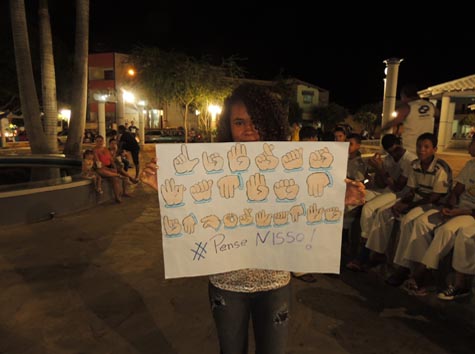 #Pense NISSO!